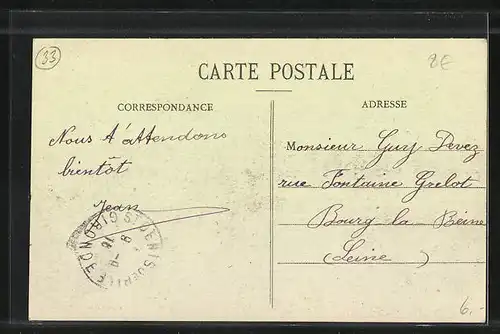 33
2€
CARTE POSTALE
CORRESPONDANCE
ADRESSE
Nous t'attendons
bientôt
Jean
Monsieur Guy Devez
rue Fontaine Grelot
Bourg la Reine
(Seine)
GIRONDE
6.-